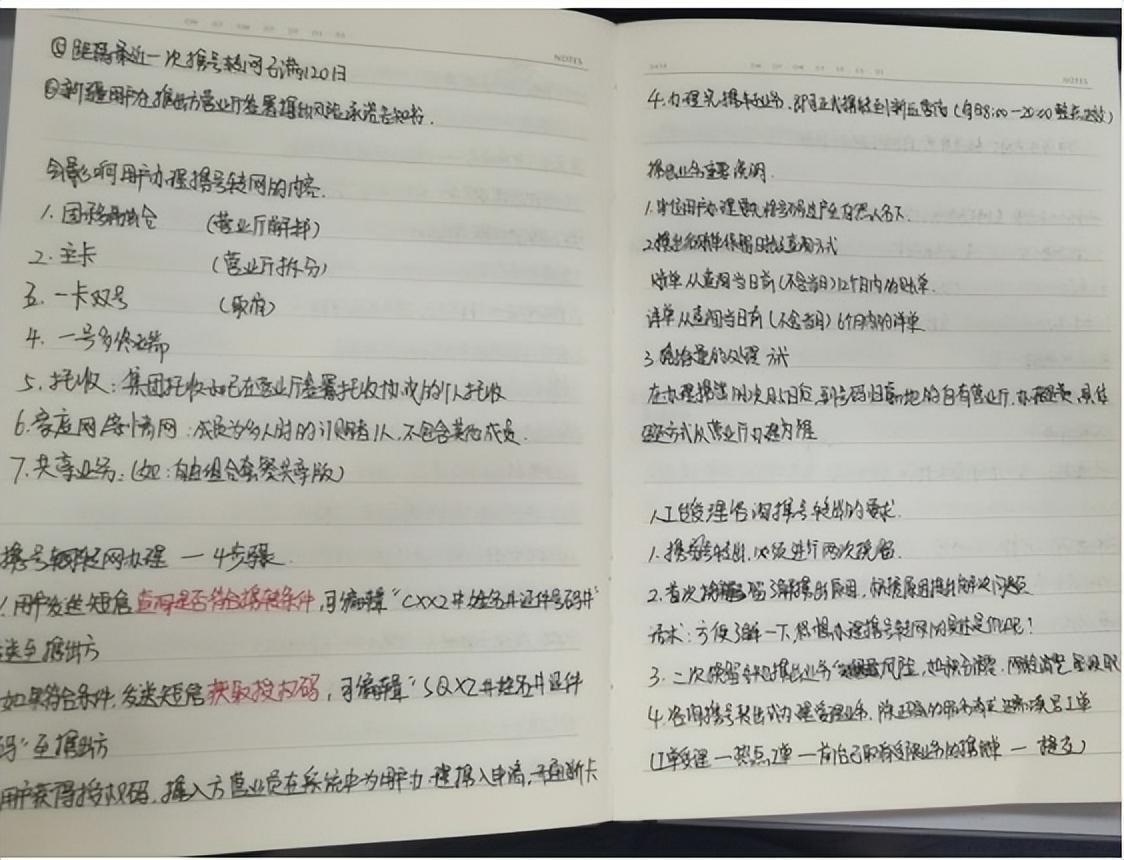 ⑤ 距离最近一次携号转网已满120日
⑥ 新疆用户在携出方营业厅签署携出风险承诺告知书.
会影响用户办理携号转网的内容.
1. 国移 (营业厅解绑)
2. 主卡 (营业厅拆分)
3. 一卡双号 (取消)
4. 一号多终端
5. 托收: 集团托收和已在营业厅签署托收协议的个人托收
6. 家庭网/亲情网: 成员为多人时的订购者1人, 不包含其他成员.
7. 共享业务: (如: 自由组合套餐共享版)
携号转网办理 — 4步骤.
1. 用户发送短信查询是否符合携转条件, 可编辑"CXXZ#姓名#证件号码#"
送至携出方
如果符合条件, 发送短信获取授权码, 可编辑"SQXZ#姓名#证件
码"至携出方
用户获得授权码, 携入方营业员在系统中为用户办理携入申请, 开通新卡
NOTES
4. 办理完携转业务, 即可正式携转到新运营商 (每日8:00—20:00整点生效)
携出业务重要说明.
1. 单位用户办理要先将号码过户至自然人名下.
2. 携出
账单从查询当日前(不含当月)12个月内的账单.
详单从查询当日前(不含当月)6个月内的详单
3. 的处理方式
在办理携出的次月 日后, 到号码归属地的自有营业厅, 办理退费, 具体
方式以营业厅办理为准
人工受理咨询携号转出的要求.
1. 携号转出, 必须进行两次挽留.
2. 首次挽留 了解携出原因, 依据原因提出解决问题
话术: 方便了解一下, 您想办理携号转网的具体是什么呢?
3. 二次挽留告知携出业务风险, 如积分清零、
4. 咨询携号转出或办理受理业务, 工单
(工单受理 — 热点工单 — 携转 — 提交)
NOTES